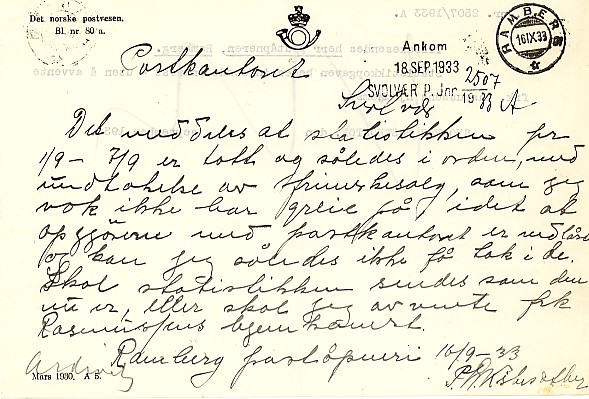 Det norske postvesen.
Bl. nr. 80 a.
RAMBERG
16 IX 33
Ankom
18 SEP. 1933
SVOLVÆR P. Jnr. 2507
1933 A
Postkontoret
Svolvær
Det meddeles at statistikken for
1/9 – 7/9 er tatt og således i orden, med
undtakelse av frimerkesalg, som jeg
nok ikke har greie på idet at
opgjörene med postkontoret er nedlåst
og kan jeg således ikke få tak i de.
Skal statistikken sendes som den
nu er, eller skal jeg avvente frk
Rasmussens hjemkomst.
Ramberg poståpneri 16/9 – 33
Mars 1930. A 5.